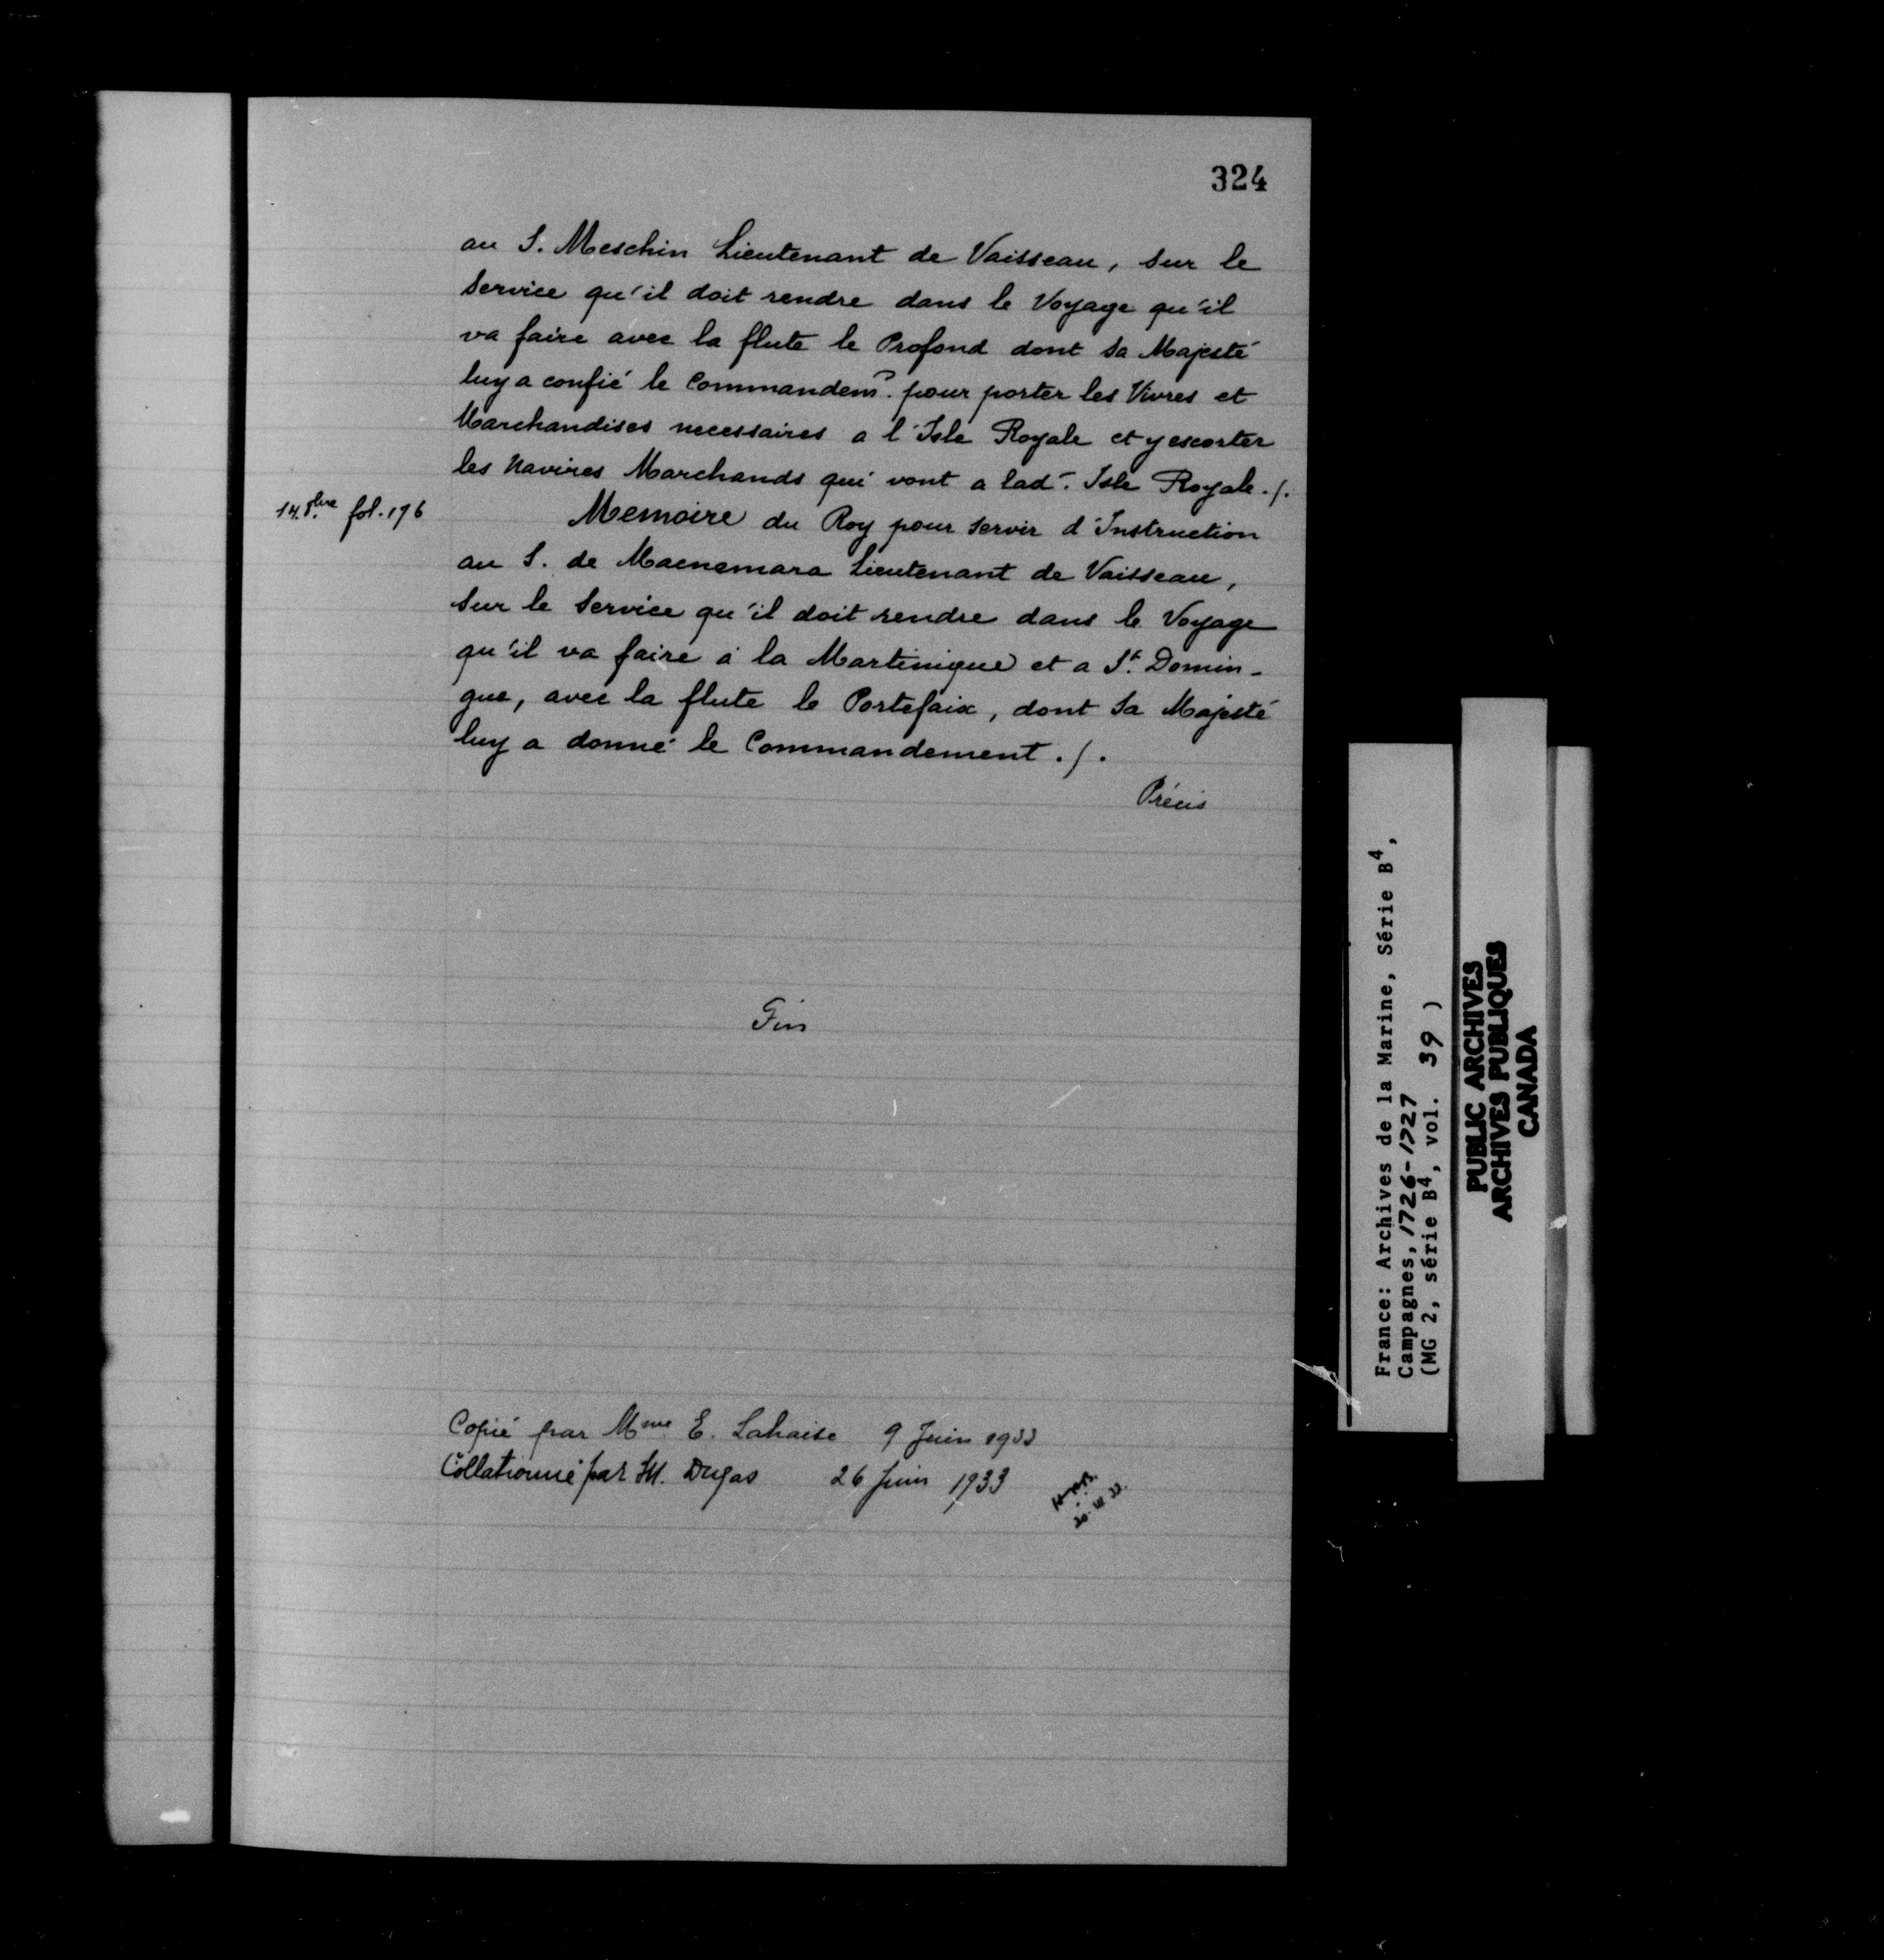 324
au S. Meschin Lieutenant de Vaisseau, sur le
service qu'il doit rendre dans le Voyage qu'il
va faire avec la flute le Profond dont sa Majesté
luy a confié le Commandem.t pour porter les Vivres et
Marchandises necessaires a l'Isle Royale et y escorter
les Navires Marchands qui vont a lad. Isle Royale ./.
14. 8bre fol. 196
Memoire du Roy pour servir d'Instruction
au S. de Macnemara Lieutenant de Vaisseau,
sur le service qu'il doit rendre dans le Voyage
qu'il va faire à la Martinique et a St. Domin-
gue, avec la flute le Portefaix, dont sa Majesté
luy a donné le Commandement ./.
Précis
Fin
Copié par Mme E. Lahaise 9 Juin 1933
Collationné par M. Dugas 26 Juin 1933
France: Archives de la Marine, Série B4,
Campagnes, 1726-1727
(MG 2, série B4, vol. 39 )
PUBLIC ARCHIVES
ARCHIVES PUBLIQUES
CANADA